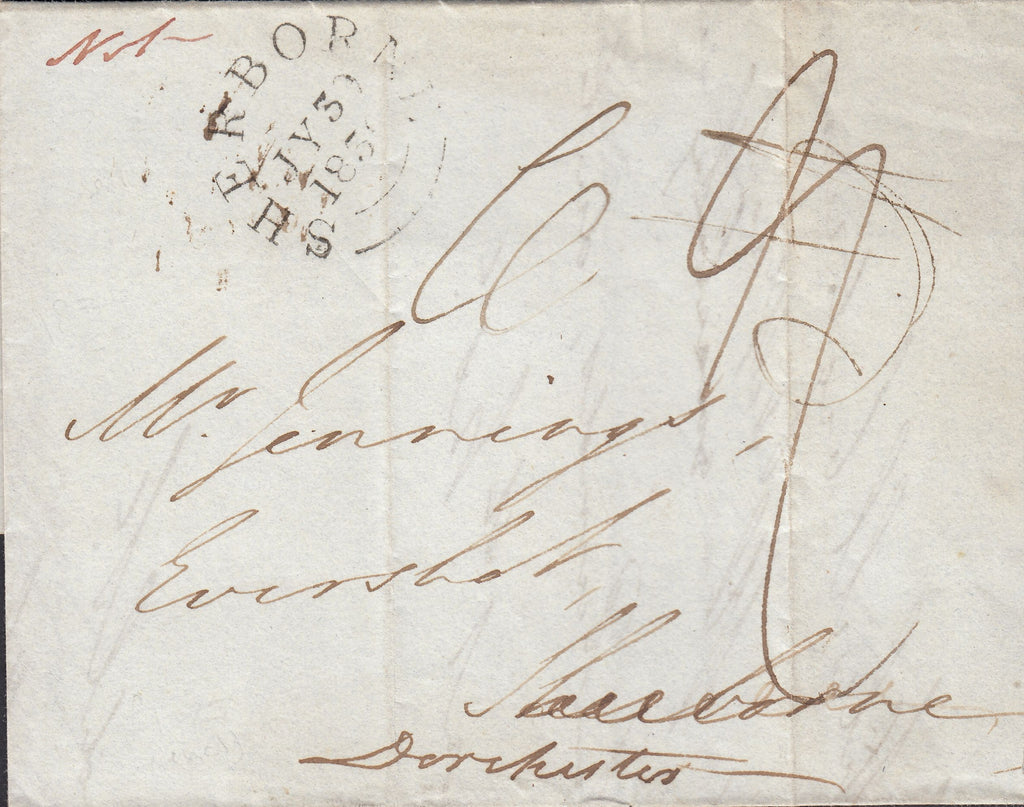 Not
SHERBORNE
JY 30
183
Mr. Jennings,
Evershot,
Sherborne
Dorchester